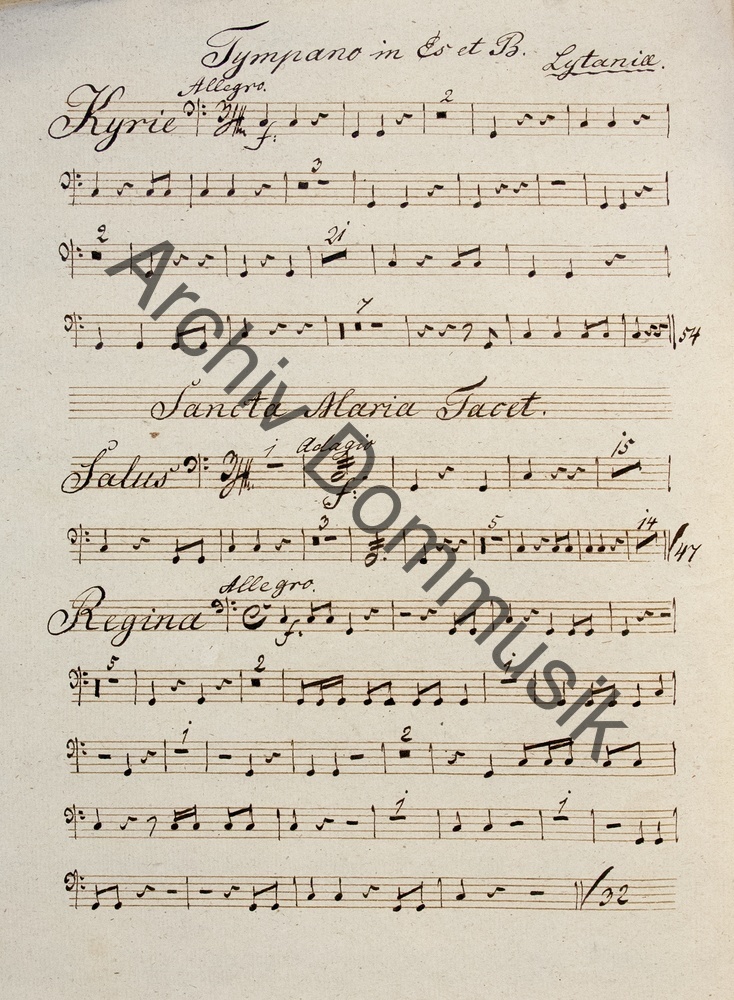 Tympano in Es et B.
Lytaniæ.
Allegro.
Kyrie
f.
2
3
2
21
7
54
Sancta Maria Tacet.
Salus
1
Adagio
f.
15
3
5
14
47
Allegro.
Regina
C
f.
5
2
1
1
2
1
1
32
Archiv Dommusik